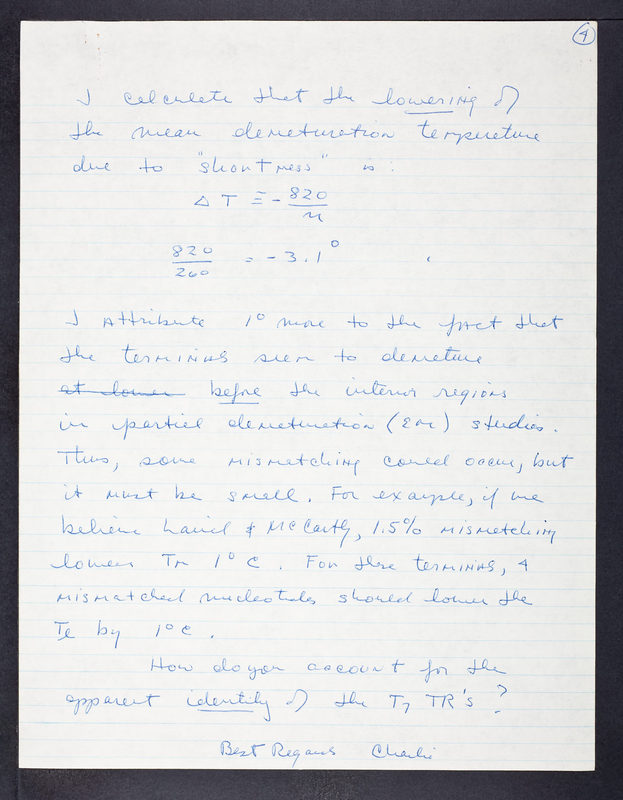 4
I calculate that the lowering of
the mean denaturation temperature
due to "shortness" is:
Δ T = - 820/n
820/260 = - 3.1°
I attribute 1° more to the fact that
the terminals seem to denature
at lower before the interior regions
in partial denaturation (EM) studies.
Thus, some mismatching could occur, but
it must be small. For example, if we
believe Laird & McCarthy, 1.5% mismatching
lowers Tm 1° C. For these terminals, 4
mismatched nucleotides should lower the
Te by 1° C.
How do you account for the
apparent identity of the T7 TR's?
Best Regards Charlie